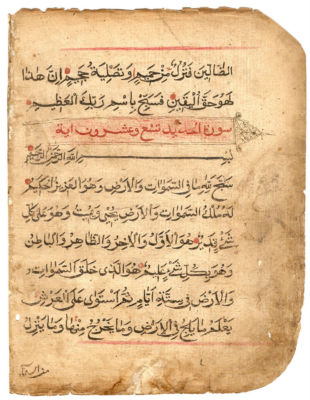 الضالين فنزل من حميم وتصلية جحيم ان هذا
لهو حق اليقين فسبح باسم ربك العظيم
سورة الحديد تسع وعشرون اية
بسم الله الرحمن الرحيم
سبح لله ما في السموات والارض وهو العزيز الحكيم
له ملك السموات والارض يحيي ويميت وهو على كل
شيء قدير هو الاول والاخر والظاهر والباطن
وهو بكل شيء عليم هو الذي خلق السموات
والارض في ستة ايام ثم استوى على العرش
يعلم ما يلج في الارض وما يخرج منها وما ينزل